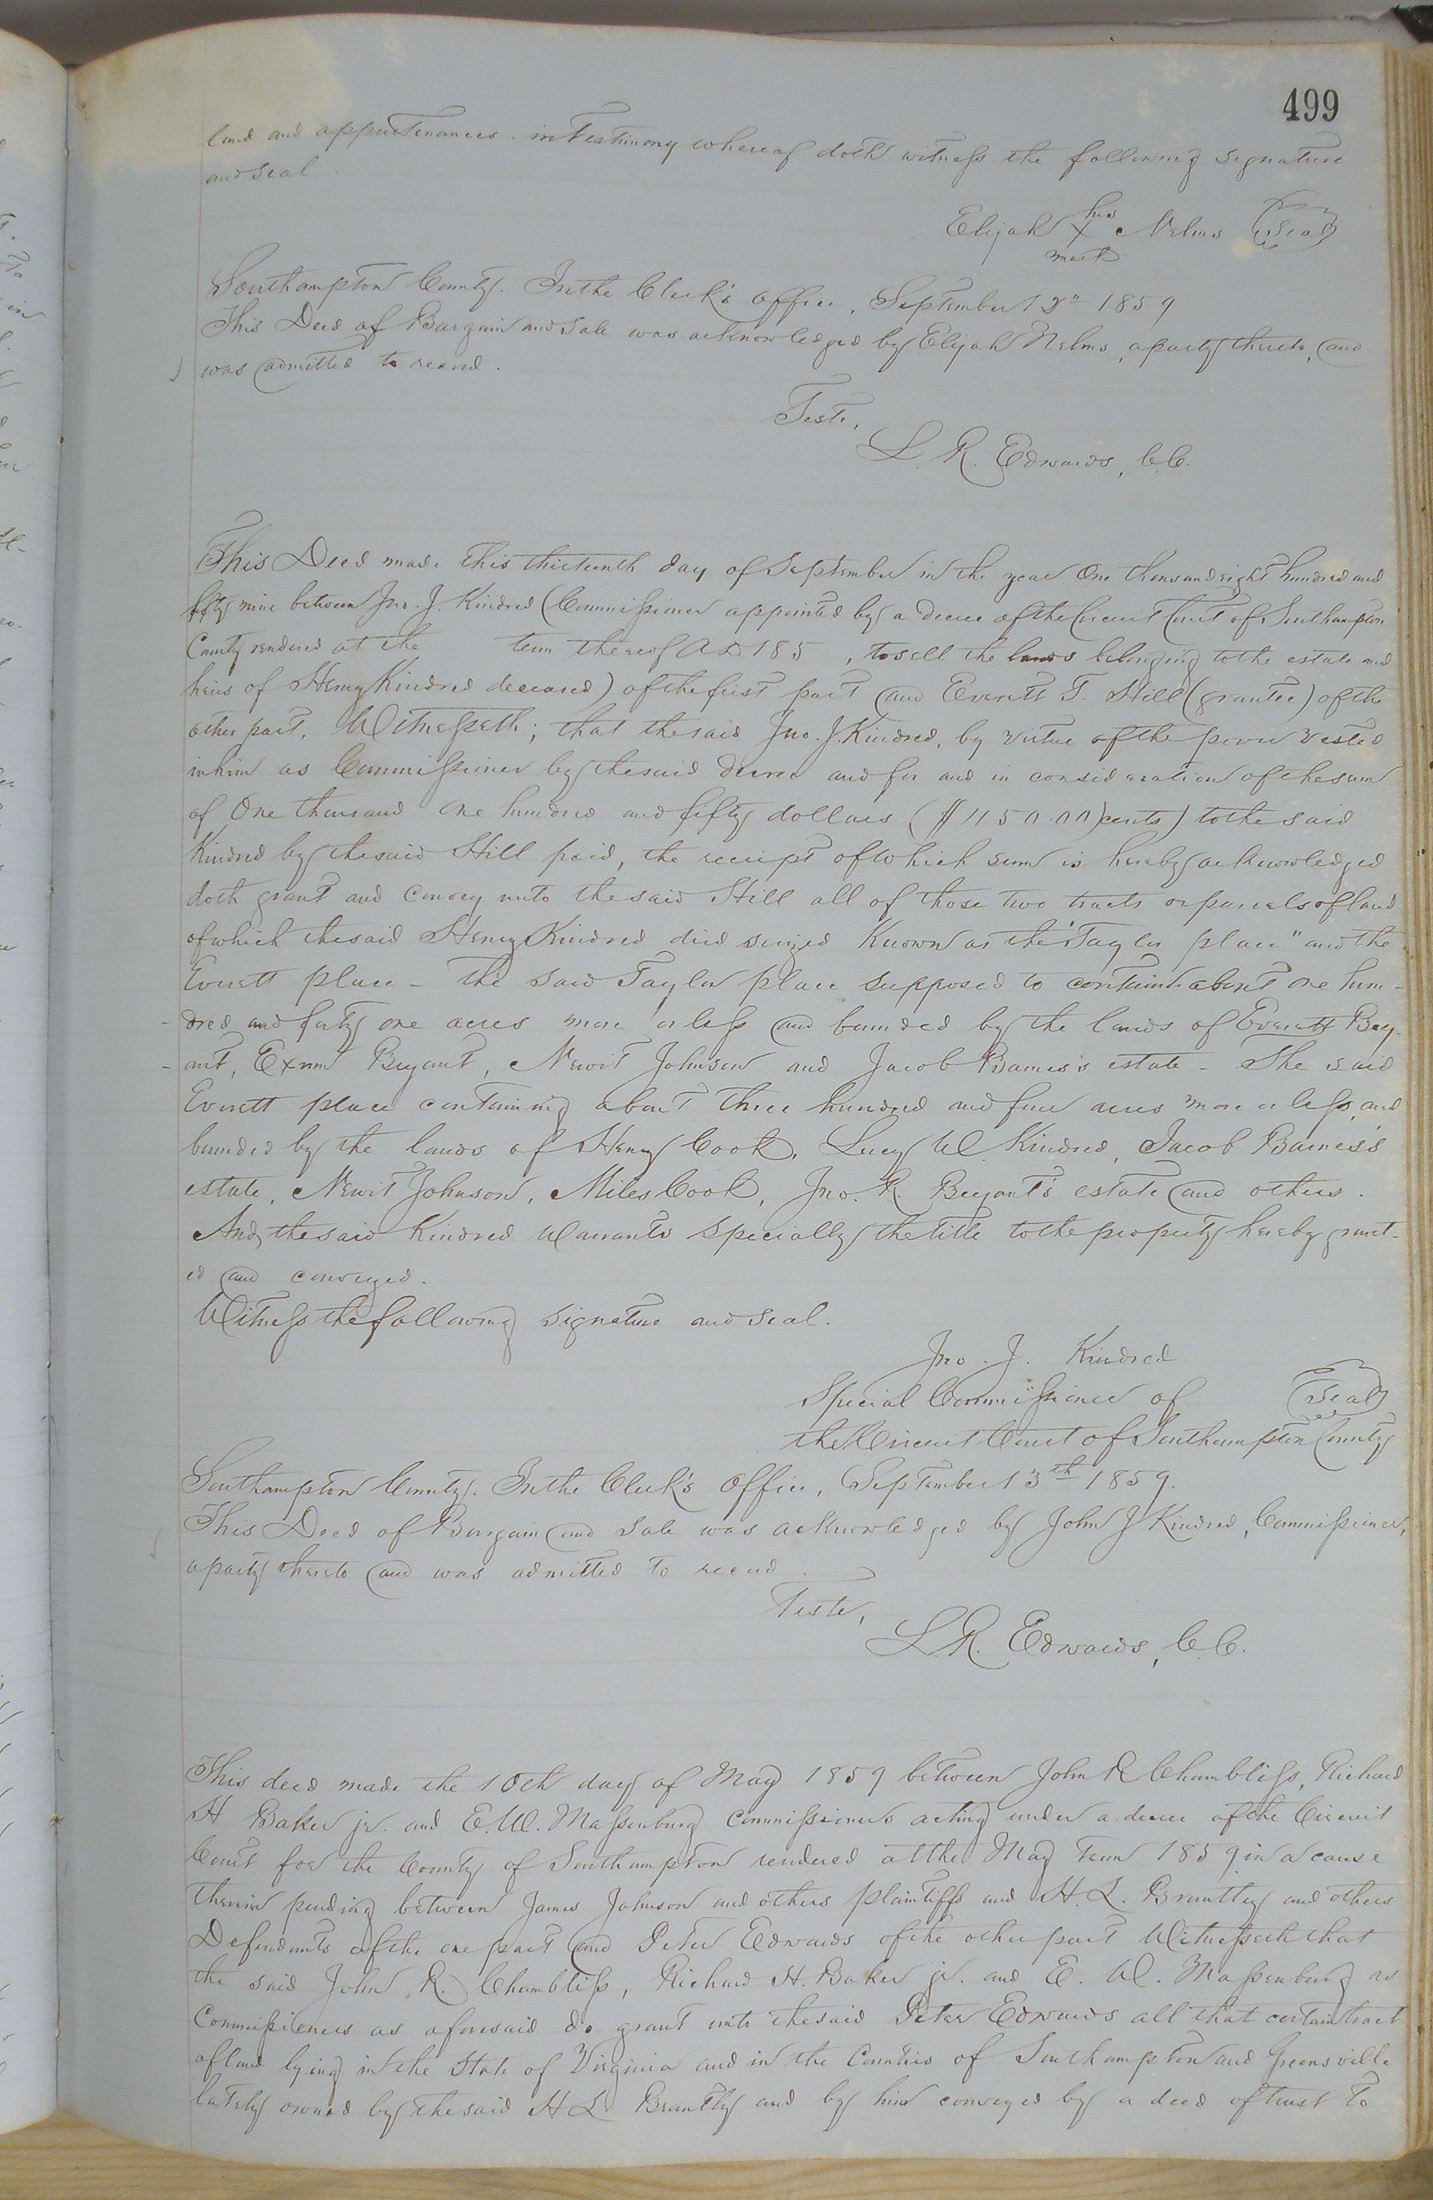 499
land and appurtenances. in Testimony whereof doth witness the following signature
and seal.
his
Elijah X Nelms (Seal)
mark
Southampton County. In the Clerk's office, September 12th 1859
This Deed of Bargain and Sale was acknowledged by Elijah Nelms, a party thereto, and
was admitted to record.
Teste,
L. R. Edwards, C.C.
This Deed made this thirteenth day of September in the year One thousand eight hundred and
fifty nine between Jno. J. Kindred (Commissioner appointed by a decree of the Circuit Court of Southampton
County rendered at the term thereof AD 185 , to sell the lands belonging to the estate and
heirs of Henry Kindred deceased) of the first part and Everett T. Hill (grantee) of the
other part, Witnesseth; that the said Jno. J. Kindred, by virtue of the power vested
in him as Commissioner by the said decree and for and in consideration of the sum
of One thousand one hundred and fifty dollars ($1150.00)cents) to the said
Kindred by the said Hill paid, the receipt of which sum is hereby acknowledged
doth grant and convey unto the said Hill all of those two tracts or parcels of land
of which the said Henry Kindred died seized Known as the "Taylor place" and the
Everett place - The said Taylor place supposed to contain about one hun-
dred and forty one acres more or less and bounded by the lands of Everett Bry-
ant, Exum Bryant, Newit Johnson and Jacob Barnes's estate - The said
Everett place containing about three hundred and four acres more or less, and
bounded by the lands of Henry Cook, Lucy W. Kindred, Jacob Barnes's
estate, Newit Johnson, Miles Cook, Jno. R. Bryant's estate and others.
And the said Kindred Warrants Specially the title to the property hereby grant-
ed and conveyed.
Witness the following signature and seal.
Jno. J. Kindred
Special Commissioner of (Seal)
the Circuit Court of Southampton County
Southampton County. In the Clerk's Office, September 13th 1859.
This Deed of Bargain and Sale was acknowledged by John J Kindred, Commissioner,
a party thereto and was admitted to record.
Teste,
L. R. Edwards, C.C.
This deed made the 10th day of May 1859 between John R Chambliss, Richard
H Baker jr. and E. W. Massenburg Commissioners acting under a decree of the Circuit
Court for the County of Southampton rendered at the May Term 1859 in a cause
therein pending between James Johnson and others plaintiffs and H. L. Brantley and others
Defendants of the one part and Peter Edwards of the other part Witnesseth that
the said John R. Chambliss, Richard H. Baker jr. and E. W. Massenburg as
Commissioners as aforesaid do grant unto the said Peter Edwards all that certain tract
of land lying in the State of Virginia and in the Counties of Southampton and Greensville
lately owned by the said H L Brantly and by him conveyed by a deed of trust to